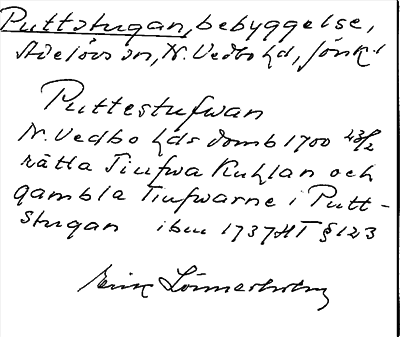 Puttstugan, bebyggelse,
Adelövs sn, N. Vedbo hd, Jönk. l
Puttestufwan
N. Vedbo hds domb 1700 23/2
rätta Tiufwa Kuhlan och
gambla Tiufwarne i Putt-
stugan ibm 1737 HT § 123